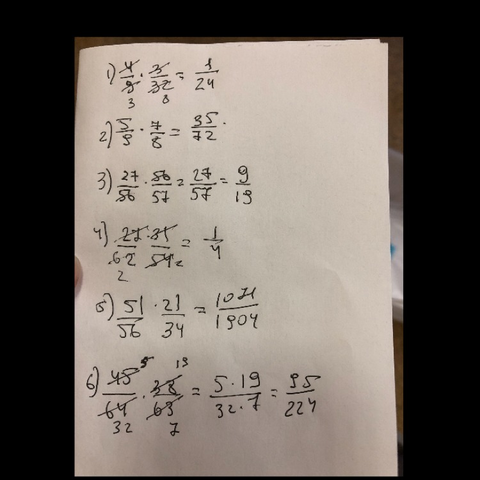 1) 4/9 · 3/32 = 1/24
3 8
2) 5/9 · 7/8 = 35/72
3) 27/56 · 56/57 = 27/57 = 9/19
4) 27/62 · 31/54 = 1/4
2 2
5) 51/56 · 21/34 = 1071/1904
6) 45/64 · 38/63 = 5·19/32·7 = 95/224
5 19
32 7